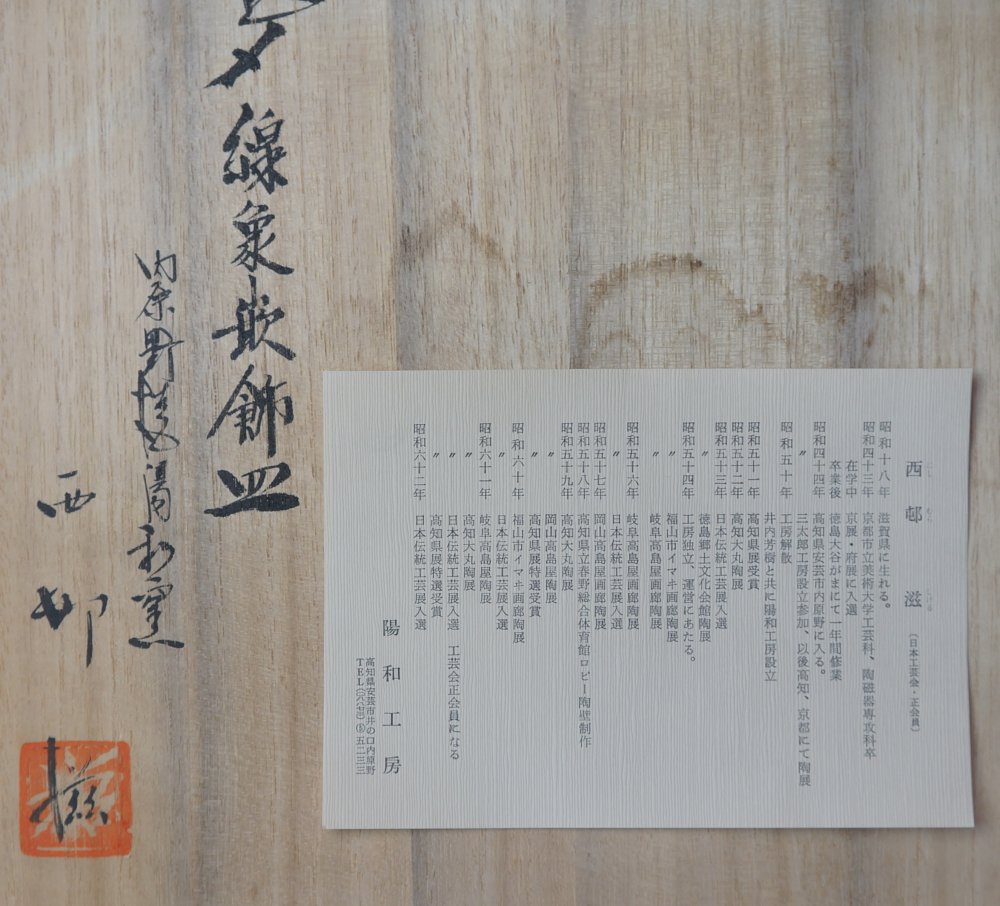 夕線象嵌飾皿
内原野焼陽和窯
西邨
滋
西邨 滋 〔日本工芸会・正会員〕
にし むら しげる
昭和十八年 滋賀県に生れる。
昭和四十三年 京都市立美術大学工芸科、陶磁器専攻科卒
在学中 京展・府展に入選
卒業後 徳島大谷がまにて一年間修業
昭和四十四年 高知県安芸市内原野に入る。
〃 三太郎工房設立参加、以後高知、京都にて陶展
昭和五十年 工房解散
井内芳樹と共に陽和工房設立
昭和五十一年 高知県展受賞
昭和五十二年 高知大丸陶展
昭和五十三年 日本伝統工芸展入選
徳島郷土文化会館陶展
昭和五十四年 工房独立、運営にあたる。
〃 福山市イマヰ画廊陶展
〃 岐阜高島屋画廊陶展
昭和五十六年 岐阜高島屋画廊陶展
〃 日本伝統工芸展入選
昭和五十七年 岡山高島屋画廊陶展
昭和五十八年 高知県立春野総合体育館ロビー陶壁制作
昭和五十九年 高知大丸陶展
〃 岡山高島屋陶展
〃 高知県展特選受賞
昭和六十年 福山市イマヰ画廊陶展
〃 日本伝統工芸展入選
昭和六十一年 岐阜高島屋陶展
〃 日本伝統工芸展入選 工芸会正会員になる
〃 高知県展特選受賞
昭和六十二年 日本伝統工芸展入選
陽和工房
高知県安芸市井の口内原野